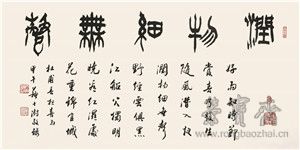 潤物細無聲
好雨知時節
當春乃發生
隨風潛入夜
潤物細無聲
野徑雲俱黑
江船火獨明
曉看紅濕處
花重錦官城
杜甫春夜喜雨
甲午蘇士澍敬錄
rongbaozhai.cn